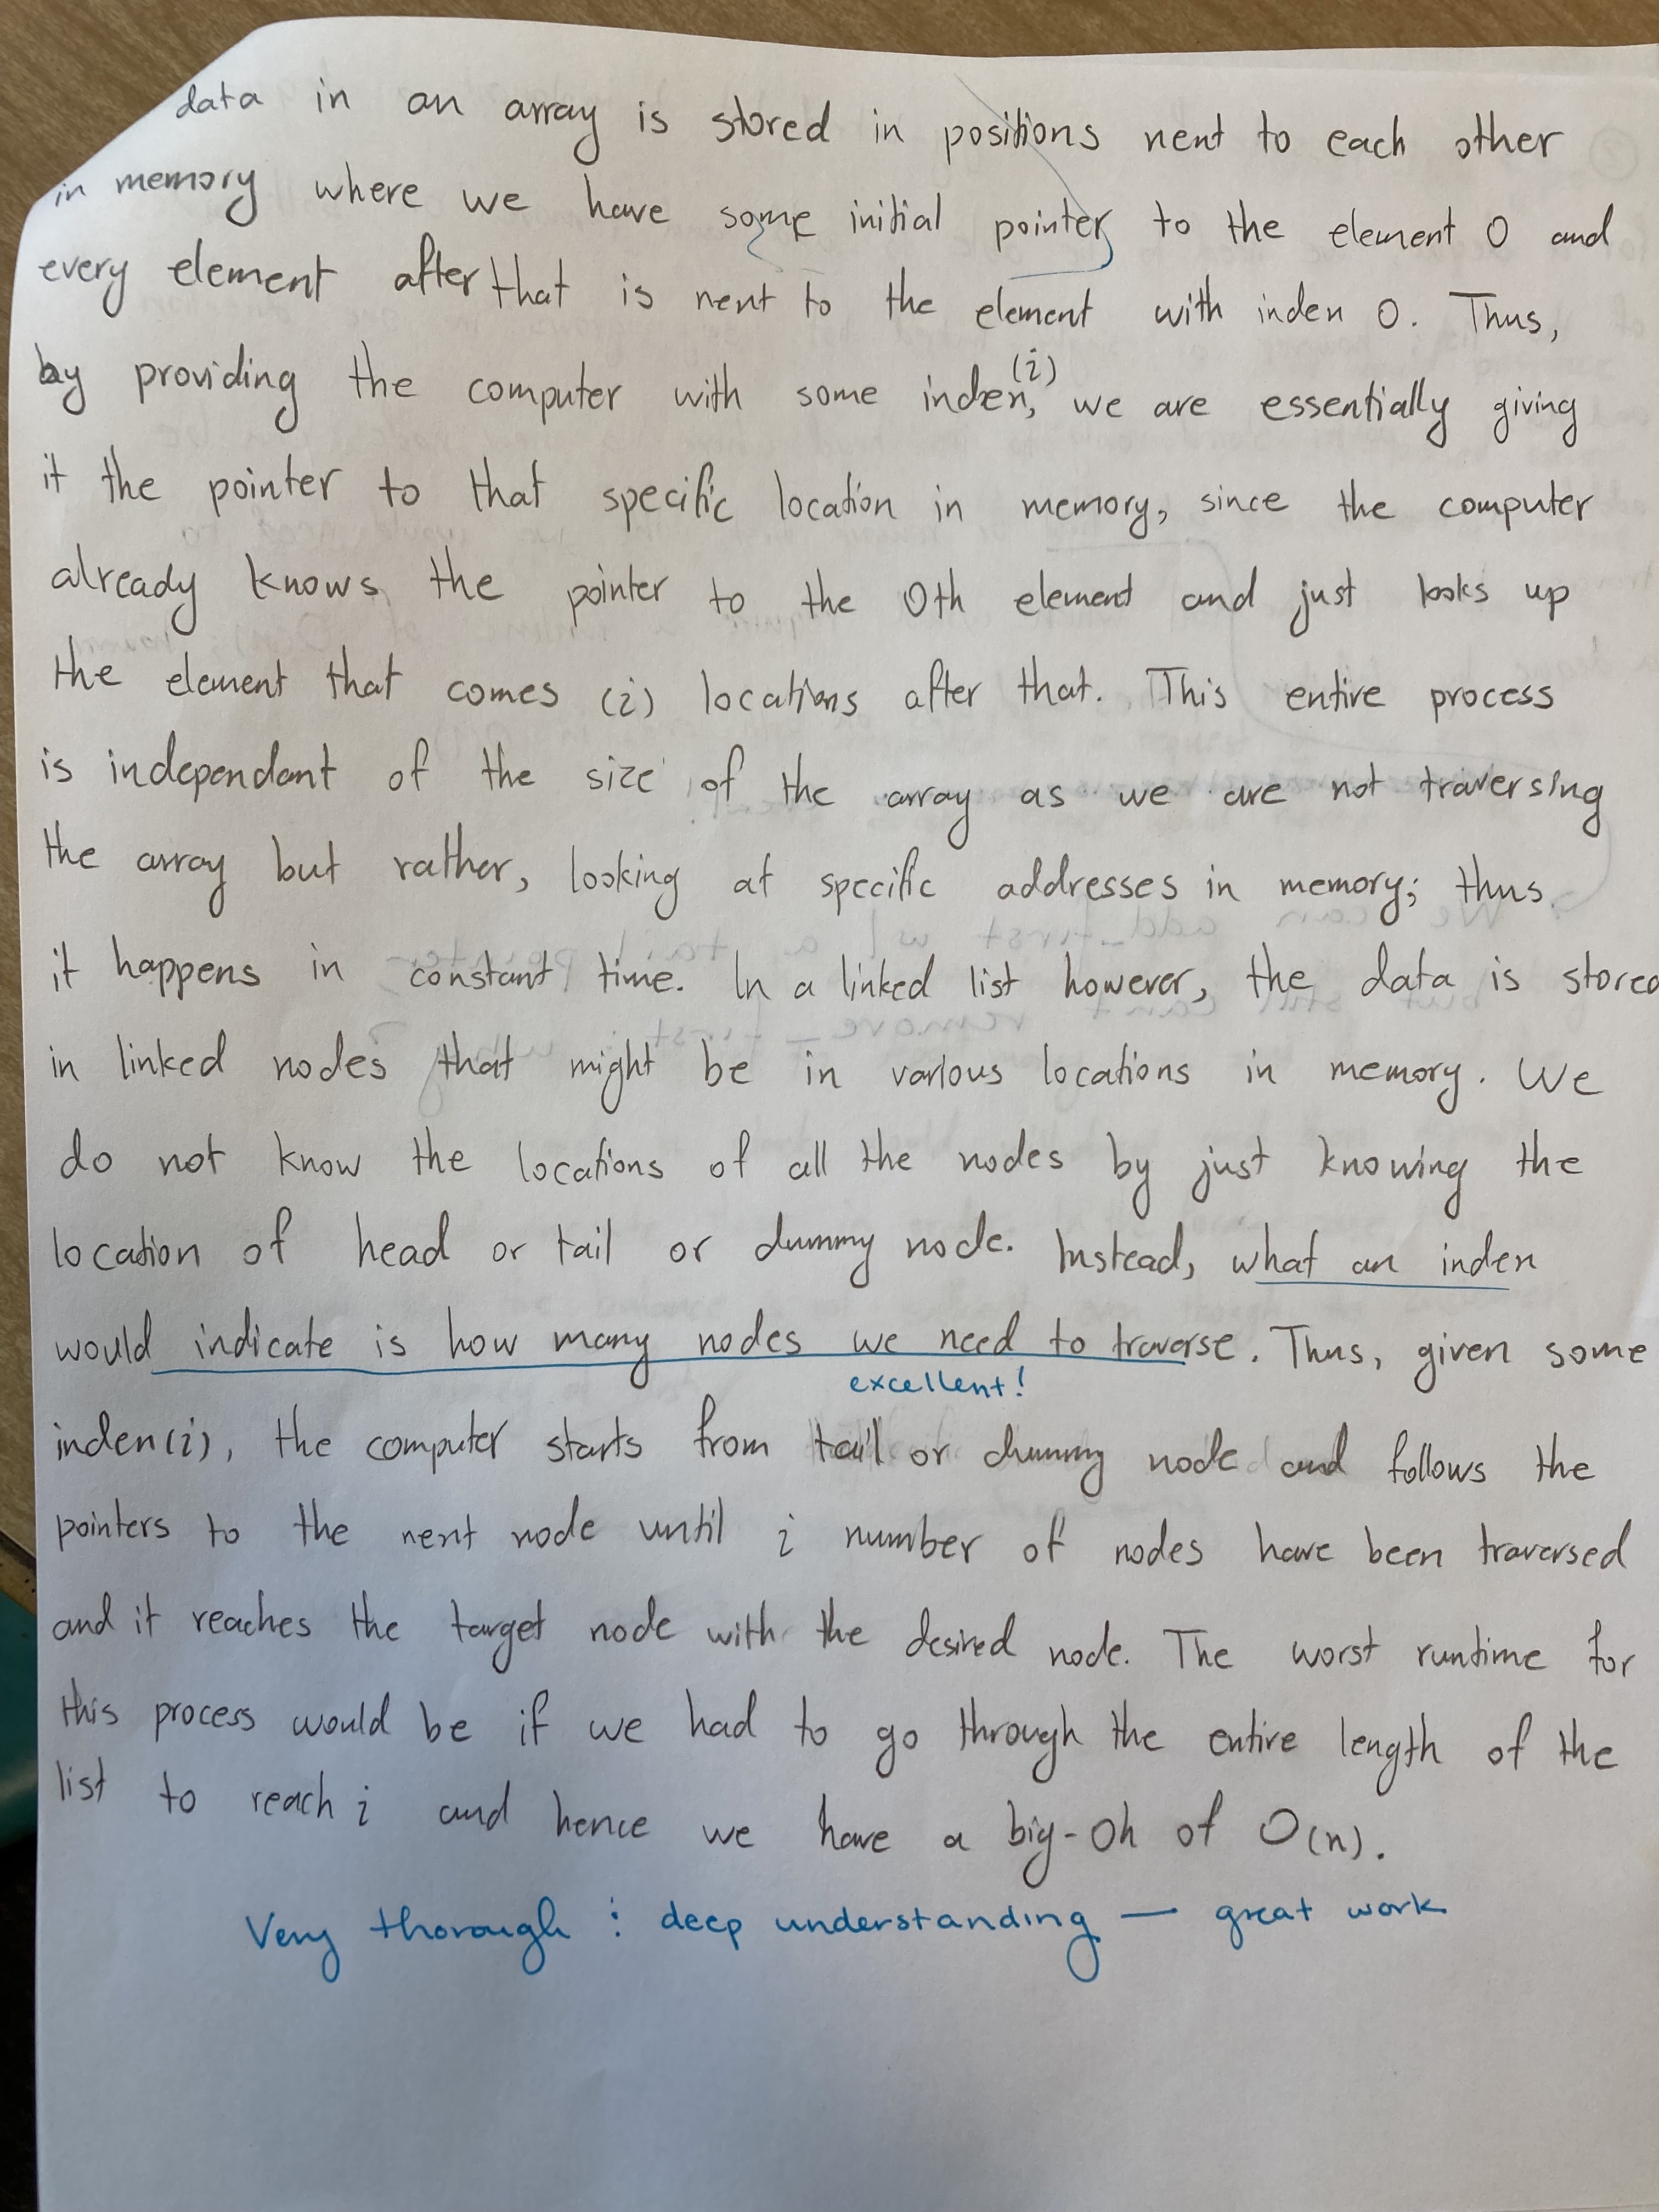 data in an array is stored in positions next to each other
in memory where we have some initial pointer to the element 0 and
every element after that is next to the element with index 0. Thus,
by providing the computer with some index, (i) we are essentially giving
it the pointer to that specific location in memory, since the computer
already knows the pointer to the 0th element and just looks up
the element that comes (i) locations after that. This entire process
is independant of the size of the array as we are not traversing
the array but rather, looking at specific addresses in memory; thus
it happens in constant time. In a linked list however, the data is stored
in linked nodes that might be in various locations in memory. We
do not know the locations of all the nodes by just knowing the
location of head or tail or dummy node. Instead, what an index
would indicate is how many nodes we need to traverse. Thus, given some
excellent!
index(i), the computer starts from tail or dummy node and follows the
pointers to the next node until i number of nodes have been traversed
and it reaches the target node with the desired node. The worst runtime for
this process would be if we had to go through the entire length of the
list to reach i and hence we have a big-Oh of O(n).
Very thorough : deep understanding — great work